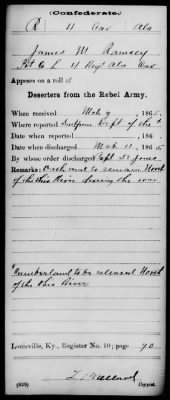 (Confederate.)
R 11 Cav Ala
James M Ramsey
Pvt Co L 11 Regt Ala Cav
Appears on a roll of
Deserters from the Rebel Army.
When received Mch 9, 1865.
Where reported Dept of the
Date when reported , 186
Date when discharged Mch 11, 1865
By whose order discharged Capt Jones
Remarks: Oath and to remain North
of the Ohio River during the war
Cumberland to be released North
of the Ohio River
Louisville, Ky., Register No. 10; page 90
(639) Copyist.